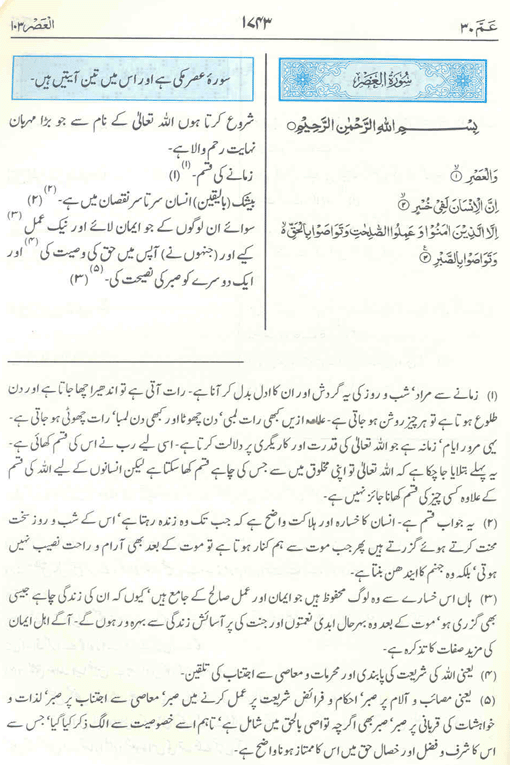 عَمَّ ٣٠
١٧٤٣
العَصر ١٠٣
سُوْرَةُ الْعَصْرِ
بِسْمِ اللهِ الرَّحْمٰنِ الرَّحِيْمِ
وَالْعَصْرِ ۙ ١
اِنَّ الْاِنْسَانَ لَفِيْ خُسْرٍ ۙ ٢
اِلَّا الَّذِيْنَ اٰمَنُوْا وَعَمِلُوا الصّٰلِحٰتِ وَتَوَاصَوْا بِالْحَقِّ ۙ
وَتَوَاصَوْا بِالصَّبْرِ ۧ ٣
سورۂ عصر مکی ہے اور اس میں تین آیتیں ہیں۔
شروع کرتا ہوں اللہ تعالیٰ کے نام سے جو بڑا مہربان
نہایت رحم والا ہے۔
زمانے کی قسم۔ (۱) (۱)
بیشک (بالیقین) انسان سرتا سر نقصان میں ہے۔ (۲) (۲)
سوائے ان لوگوں کے جو ایمان لائے اور نیک عمل (۳)
کیے اور (جنہوں نے) آپس میں حق کی وصیت کی (۴) اور
ایک دوسرے کو صبر کی نصیحت کی۔ (۵) (۳)
(۱) زمانے سے مراد، شب و روز کی یہ گردش اور ان کا ادل بدل کر آنا ہے۔ رات آتی ہے تو اندھیرا چھا جاتا ہے اور دن
طلوع ہوتا ہے تو ہر چیز روشن ہو جاتی ہے۔ علاوہ ازیں کبھی رات لمبی، دن چھوٹا اور کبھی دن لمبا، رات چھوٹی ہو جاتی ہے۔
یہی مرور ایام، زمانہ ہے جو اللہ تعالیٰ کی قدرت اور کاریگری پر دلالت کرتا ہے۔ اسی لیے رب نے اس کی قسم کھائی ہے۔
یہ پہلے بتلایا جا چکا ہے کہ اللہ تعالیٰ تو اپنی مخلوق میں سے جس کی چاہے قسم کھا سکتا ہے لیکن انسانوں کے لیے اللہ کی قسم
کے علاوہ کسی چیز کی قسم کھانا جائز نہیں ہے۔
(۲) یہ جواب قسم ہے۔ انسان کا خسارہ اور ہلاکت واضح ہے کہ جب تک وہ زندہ رہتا ہے، اس کے شب و روز سخت
محنت کرتے ہوئے گزرتے ہیں پھر جب موت سے ہم کنار ہوتا ہے تو موت کے بعد بھی آرام و راحت نصیب نہیں
ہوتی، بلکہ وہ جہنم کا ایندھن بنتا ہے۔
(۳) ہاں اس خسارے سے وہ لوگ محفوظ ہیں جو ایمان اور عمل صالح کے جامع ہیں، کیوں کہ ان کی زندگی چاہے جیسی
بھی گزری ہو، موت کے بعد وہ بہرحال ابدی نعمتوں اور جنت کی پر آسائش زندگی سے بہرہ ور ہوں گے۔ آگے اہل ایمان
کی مزید صفات کا تذکرہ ہے۔
(۴) یعنی اللہ کی شریعت کی پابندی اور محرمات و معاصی سے اجتناب کی تلقین۔
(۵) یعنی مصائب و آلام پر صبر، احکام و فرائض شریعت پر عمل کرنے میں صبر، معاصی سے اجتناب پر صبر، لذات و
خواہشات کی قربانی پر صبر، صبر بھی اگرچہ تواصی بالحق میں شامل ہے، تاہم اسے خصوصیت سے الگ ذکر کیا گیا، جس سے
اس کا شرف و فضل اور خصال حق میں اس کا ممتاز ہونا واضح ہے۔